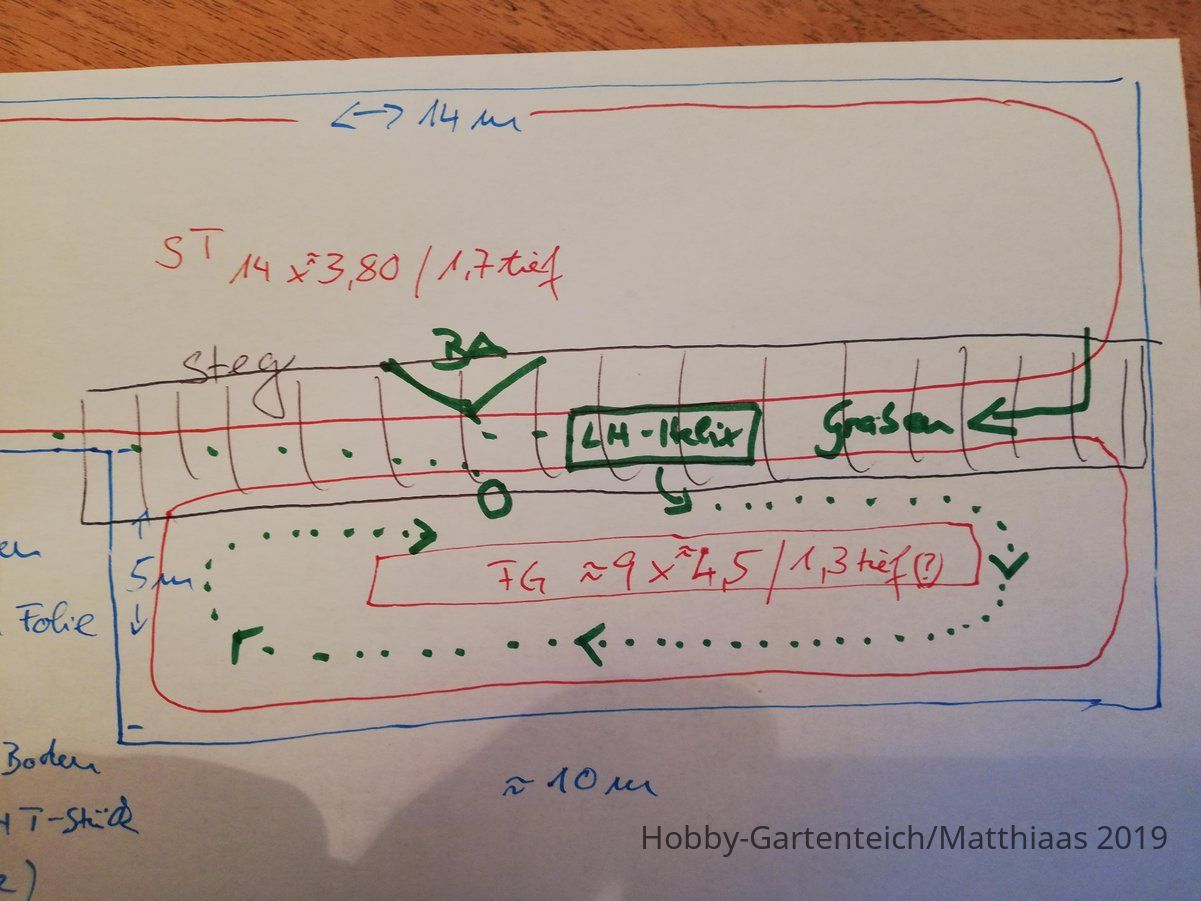 <-> 14 m
ST 14 x ≈3,80 / 1,7 tief
BA
Steg
LH-Helix
Graben
O
5m
FG ≈9 x ≈4,5 / 1,3 tief (?)
Folie
Boden
T-Stück
≈ 10 m
Hobby-Gartenteich/Matthiaas 2019